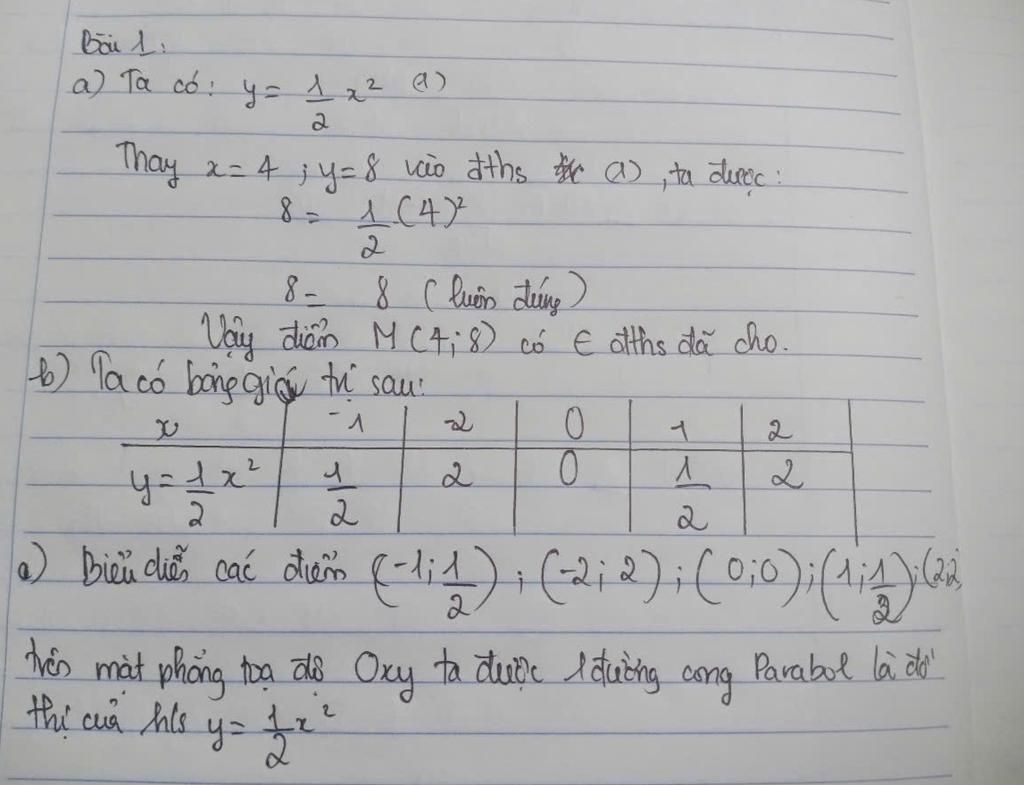 Bài 1:
a) Ta có: y = 1/2 x² (1)
Thay x = 4 ; y = 8 vào đths (1), ta được:
8 = 1/2 (4)²
8 = 8 (luôn đúng)
Vậy điểm M (4; 8) có ∈ đths đã cho.
b) Ta có bảng giá trị sau:
x -1 -2 0 1 2
y = 1/2 x² 1/2 2 0 1/2 2
a) Biểu diễn các điểm (-1; 1/2) ; (-2; 2) ; (0; 0) ; (1; 1/2) ; (2; 2)
trên mặt phẳng toạ độ Oxy ta được 1 đường cong Parabol là đồ
thị của h/s y = 1/2 x²